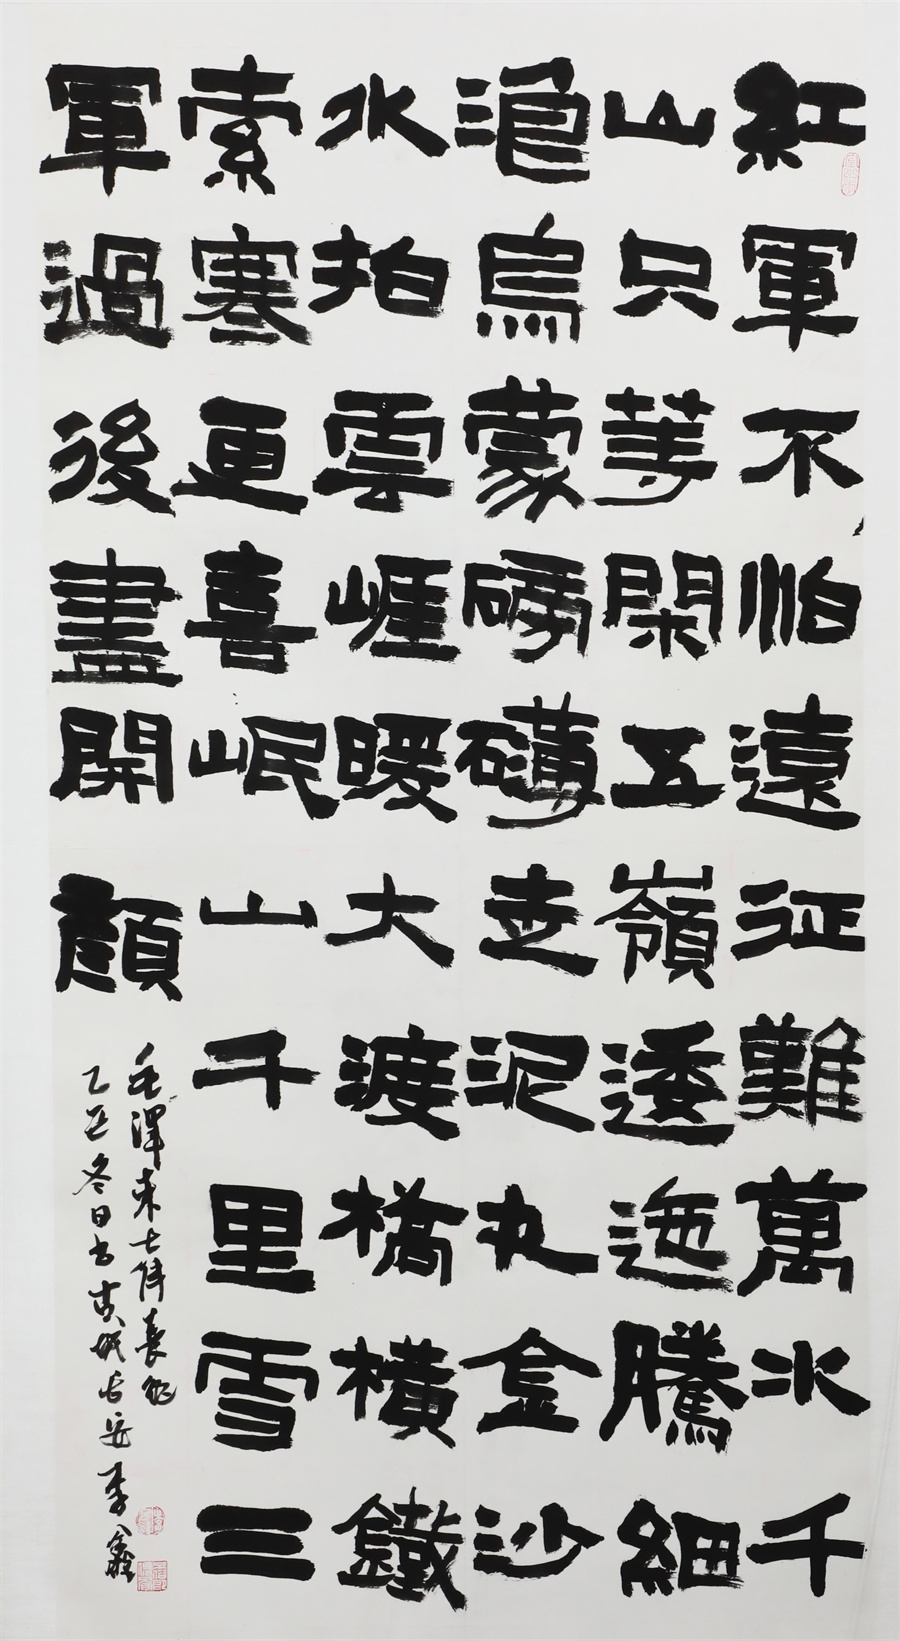 紅軍不怕遠征難萬水千
山只等閑五嶺逶迤騰細
浪烏蒙磅礴走泥丸金沙
水拍雲崖暖大渡橋橫鐵
索寒更喜岷山千里雪三
軍過後盡開顏
毛澤東七律長征
乙巳冬日書 長安李鑫